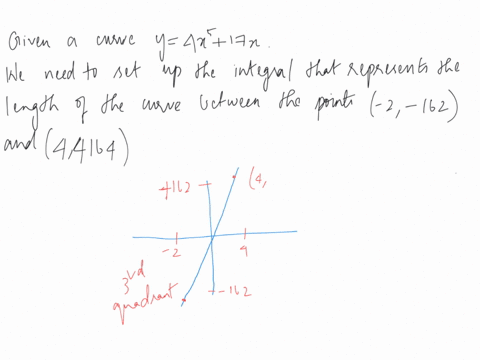 Given a curve y=4x⁵+17x.
We need to set up the integral that represents the
length of the curve between the points (-2, -162)
and (4,4164)
4162
(4,
-2
4
3rd
quadrant
-162